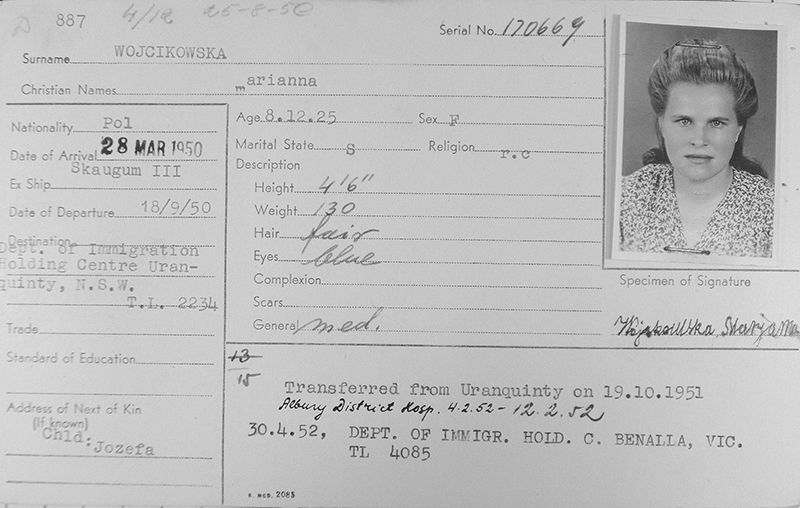 D 887 4/12 25-8-50
Serial No. 170669
Surname WOJCIKOWSKA
Christian Names marianna
Nationality Pol
Date of Arrival 28 MAR 1950
Ex Ship Skaugum III
Date of Departure 18/9/50
Destination
Dept. of Immigration
Holding Centre Uran-
quinty, N.S.W.
T.L. 2234
Trade
Standard of Education
Address of Next of Kin
(If known)
Chld:
Jozefa
Age 8.12.25 Sex F
Marital State S Religion r.c
Description
Height 4'6"
Weight 130
Hair fair
Eyes blue
Complexion
Scars
General med.
Specimen of Signature
Marjanna
13
15
Transferred from Uranquinty on 19.10.1951
Albury District Hosp. 4.2.52 - 12.2.52
30.4.52, DEPT. OF IMMIGR. HOLD. C. BENALLA, VIC.
TL 4085
2085